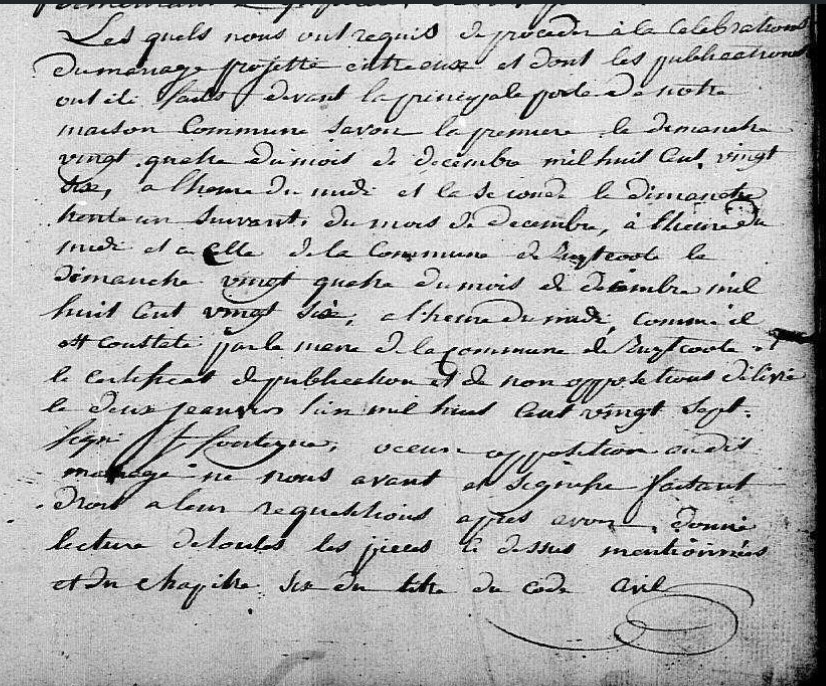 Les quels nous ont requis de proceder à la Celebrations
du mariage projetté entre eux et dont les publications
ont été faites devant la principale porte de notre
maison Commune Savoir la premiere le dimanche
vingt quatre du mois de decembre mil huit Cent vingt
six, a l'heure du midi et la seconde le dimanche
trente un Suivant, du mois de decembre, à l'heure du
midi et a celle de la Commune de Zuytcoote le
dimanche vingt quatre du mois de decembre mil
huit Cent vingt six, a l'heure du midi, comme il
est constaté par le maire de la commune de Zuytcoote et
le certificat de publication et de non oppositions délivré
le deux jeanvier l'an mil huit Cent vingt Sept.
Signé, aucune opposition audit
mariage ne nous ayant eté Signifié faisant
droit a leur requetitions apres avoir donné
lecture de toutes les pieces ci dessus mentionnées
et du chapitre six du titre du code Civil